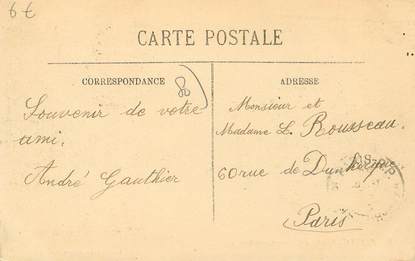 6€
CARTE POSTALE
CORRESPONDANCE
Souvenir de votre
ami.
André Gauthier
ADRESSE
Monsieur et
Madame L. Rousseau
60 rue de Dunkerque
Paris